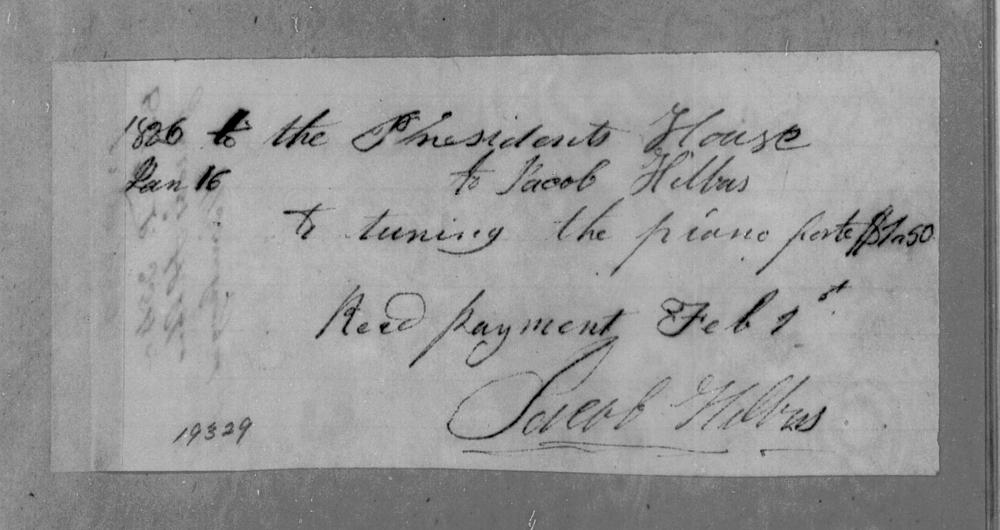 1826 to the Presidents House
Jan 16 to Jacob Hilbus
to tuning the piano forte $1..50
Recd payment Feb 1st
Jacob Hilbus
19329